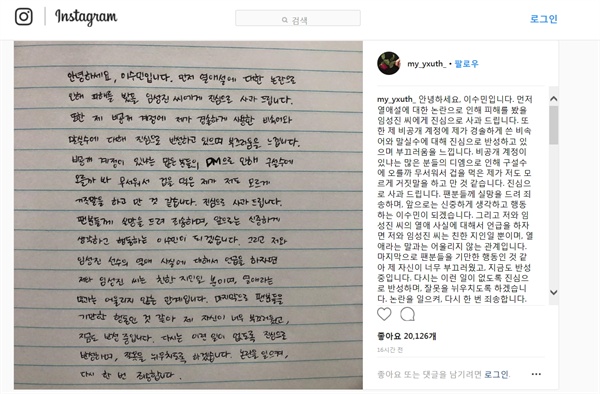 Instagram
검색
로그인
안녕하세요, 이수민입니다. 먼저 열애설에 대한 논란으로
인해 피해를 봤을 임성진 씨에게 진심으로 사과 드립니다.
또한 제 비공개 계정에 제가 경솔하게 사용한 비속어와
말실수에 대해 진심으로 반성하고 있으며 부끄러움을 느낍니다.
비공개 계정이 있냐는 많은 분들의 DM으로 인해 구설수에
오를까 봐 무서워서 겁을 먹은 제가 저도 모르게
거짓말을 하고 만 것 같습니다. 진심으로 사과 드립니다.
팬분들께 실망을 드려 죄송하며, 앞으로는 신중하게
생각하고 행동하는 이수민이 되겠습니다. 그리고 저와
임성진 선수의 열애 사실에 대해서 언급을 하자면
저와 임성진 씨는 친한 지인일 뿐이며, 열애라는
말과는 어울리지 않는 관계입니다. 마지막으로 팬분들을
기만한 행동인 것 같아 제 자신이 너무 부끄러웠고,
지금도 반성 중입니다. 다시는 이런 일이 없도록 진심으로
반성하며, 잘못을 뉘우치도록 하겠습니다. 논란을 일으켜,
다시 한 번 죄송합니다.
my_yxuth_ • 팔로우
my_yxuth_ 안녕하세요. 이수민입니다. 먼저
열애설에 대한 논란으로 인해 피해를 봤을
임성진 씨에게 진심으로 사과 드립니다. 또
한 제 비공개 계정에 제가 경솔하게 쓴 비속
어와 말실수에 대해 진심으로 반성하고 있
으며 부끄러움을 느낍니다. 비공개 계정이
있냐는 많은 분들의 디엠으로 인해 구설수
에 오를까 무서워서 겁을 먹은 제가 저도 모
르게 거짓말을 하고 만 것 같습니다. 진심으
로 사과 드립니다. 팬분들께 실망을 드려 죄
송하며, 앞으로는 신중하게 생각하고 행동
하는 이수민이 되겠습니다. 그리고 저와 임
성진 씨의 열애 사실에 대해서 언급을 하자
면 저와 임성진 씨는 친한 지인일 뿐이며, 열
애라는 말과는 어울리지 않는 관계입니다.
마지막으로 팬분들을 기만한 행동인 것 같
아 제 자신이 너무 부끄러웠고, 지금도 반성
중입니다. 다시는 이런 일이 없도록 진심으
로 반성하며, 잘못을 뉘우치도록 하겠습니
다. 논란을 일으켜, 다시 한 번 죄송합니다.
좋아요 20,126개
16시간 전
좋아요 또는 댓글을 남기려면 로그인.